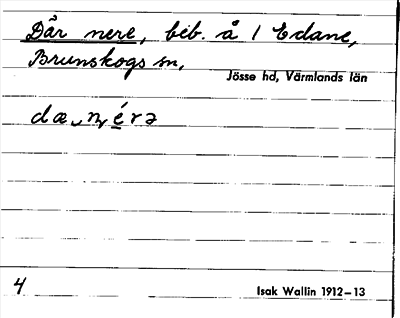 Där nere, beb. å 1 Edane,
Brunskogs sn,
Jösse hd, Värmlands län
dæ‿n é rə
4
Isak Wallin 1912–13